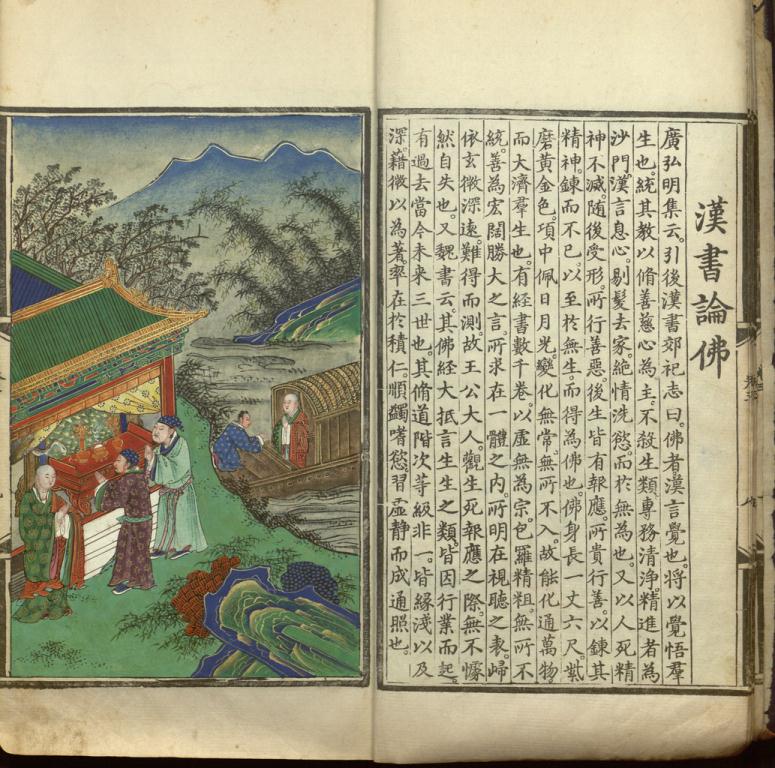 漢書論佛
廣弘明集云。引後漢書郊祀志曰。佛者漢言覺也。將以覺悟羣
生也。統其教以脩善慈心為主。不殺生類專務清淨。精進者為
沙門。漢言息心。剔髮去家。絶情洗慾。而扵無為也。又以人死精
神不滅。随後受形。所行善惡。後生皆有報應。所貴行善。以鍊其
精神。鍊而不已。以至扵無生。而得為佛也。佛身長一丈六尺。紫
磨黃金色。項中佩日月光。變化無常。無所不入。故能化通萬物。
而大濟羣生也。有經書數千卷。以虛無為宗。包羅精粗。無所不
統。善為宏闊勝大之言。所求在一體之内。所明在視聽之表。歸
依玄微深遠。難得而測。故王公大人。觀生死報應之際。無不懅
然自失也。又魏書云。其佛經大抵言生生之類。皆因行業而起。
有過去當今未來三世也。其脩道階次等級非一。皆緣淺以及
深。藉微以為著。率在扵積仁。順蠲嗜慾。習虛静而成通照也。